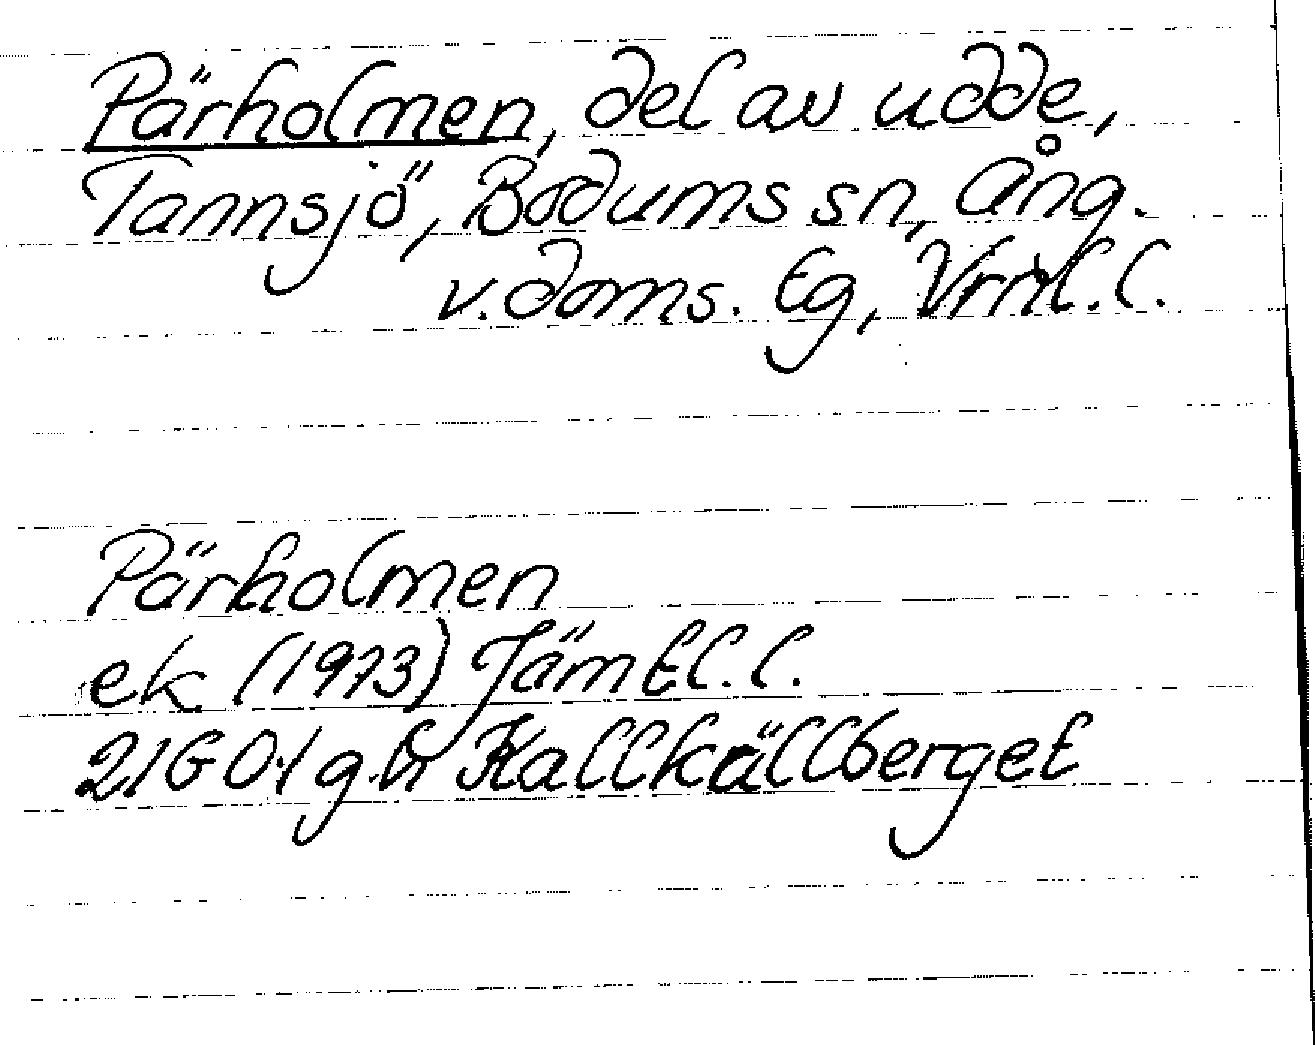 Pärholmen, del av udde,
Tannsjö, Bodums sn, Ång.
v. doms. lg, Vrnl. l.
Pärholmen
ek (1973) Jämtl. l.
21G 0-1 g-h Kallkällberget